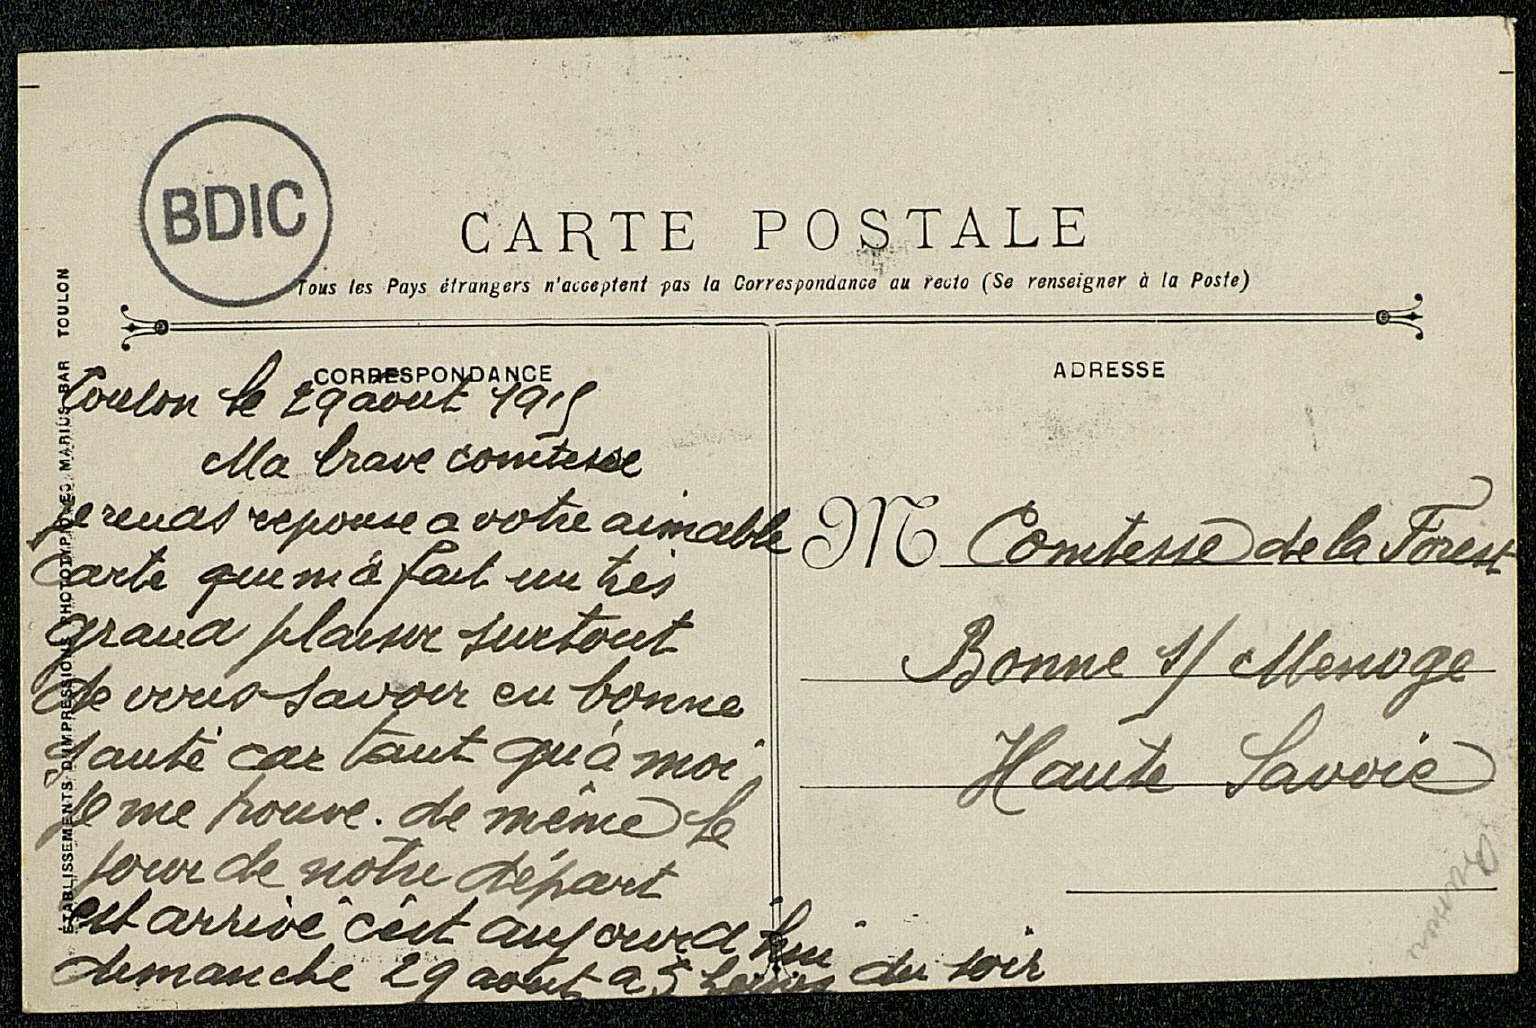 BDIC
CARTE POSTALE
Tous les Pays étrangers n'acceptent pas la Correspondance au recto (Se renseigner à la Poste)
ÉTABLISSEMENTS D'IMPRESSIONS PHOTOTYPIQUES, MARIUS BAR TOULON
CORRESPONDANCE
Toulon le 29 aout 1915
Ma brave comtesse
je rends reponse a votre aimable
carte qui m'à fait un très
grand plaisir surtout
de vous savoir en bonne
santé car tant qu'à moi
Je me trouve. de même le
jour de notre départ
est arrivé c'est aujourd'hui
dimanche 29 aout a 5 heures du soir
ADRESSE
M Comtesse de la Forest
Bonne s/ Menoge
Haute Savoie